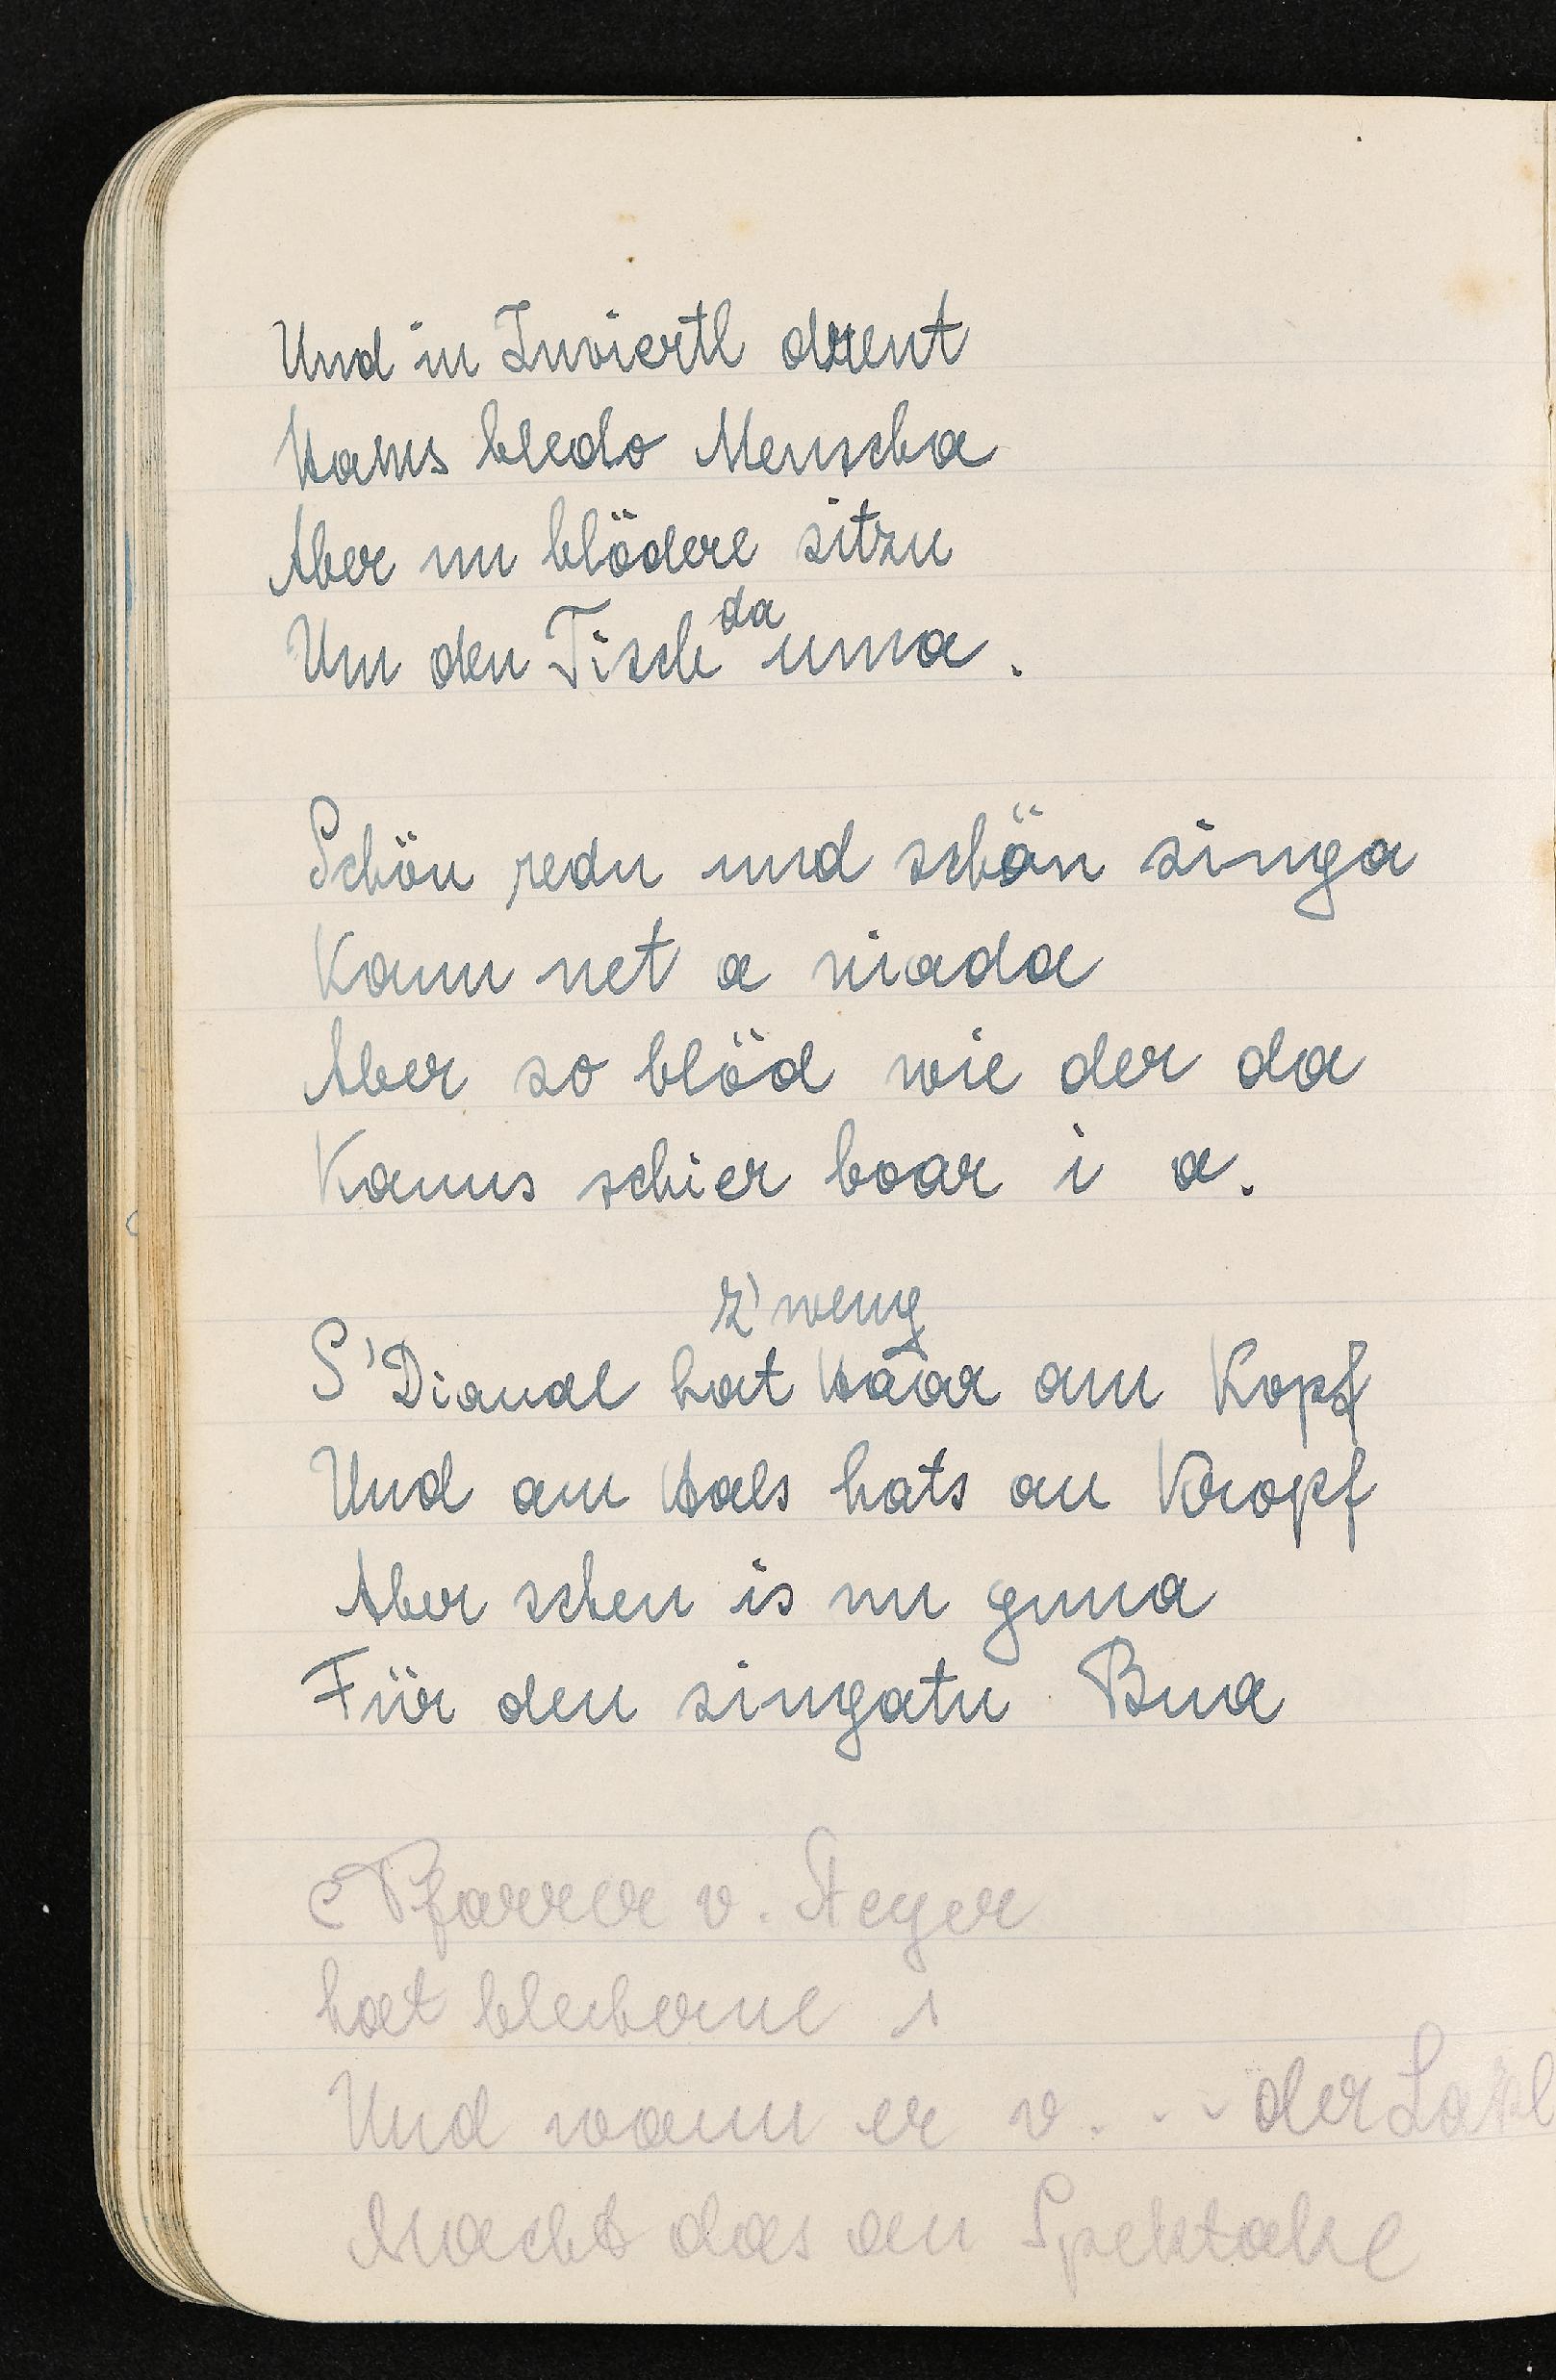 Und in Inviertl drent
Hams bledo Menscha
Aber nu blödere sitzn
Um den Tisch da uma.
Schön redn und schön singa
Kann net a niada
Aber so blöd wie der da
Kanns schier boar i a.
z'weng
S'Diandl hat Haar am Kopf
Und am Hals hats an Kropf
Aber schen is nu gnua
Für den singatn Bua
Pfarrer v. Steyer
hat blecherne
Und wann er v. - - der
Macht das an Spektakl